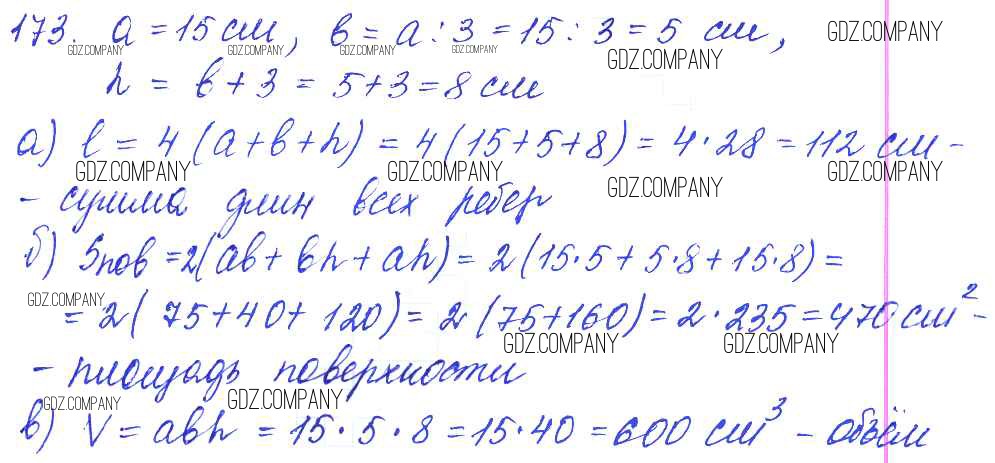 173. a = 15 см, b = a : 3 = 15 : 3 = 5 см,
GDZ.COMPANY GDZ.COMPANY GDZ.COMPANY GDZ.COMPANY GDZ.COMPANY
h = b + 3 = 5 + 3 = 8 см
а) l = 4 (a + b + h) = 4 (15 + 5 + 8) = 4 · 28 = 112 см -
GDZ.COMPANY GDZ.COMPANY GDZ.COMPANY GDZ.COMPANY
- сумма длин всех ребер
б) Sпов = 2(ab + bh + ah) = 2 (15 · 5 + 5 · 8 + 15 · 8) =
GDZ.COMPANY
= 2 ( 75 + 40 + 120) = 2 (75 + 160) = 2 · 235 = 470 см² -
GDZ.COMPANY GDZ.COMPANY
- площадь поверхности
GDZ.COMPANY GDZ.COMPANY
в) V = abh = 15 · 5 · 8 = 15 · 40 = 600 см³ - объём